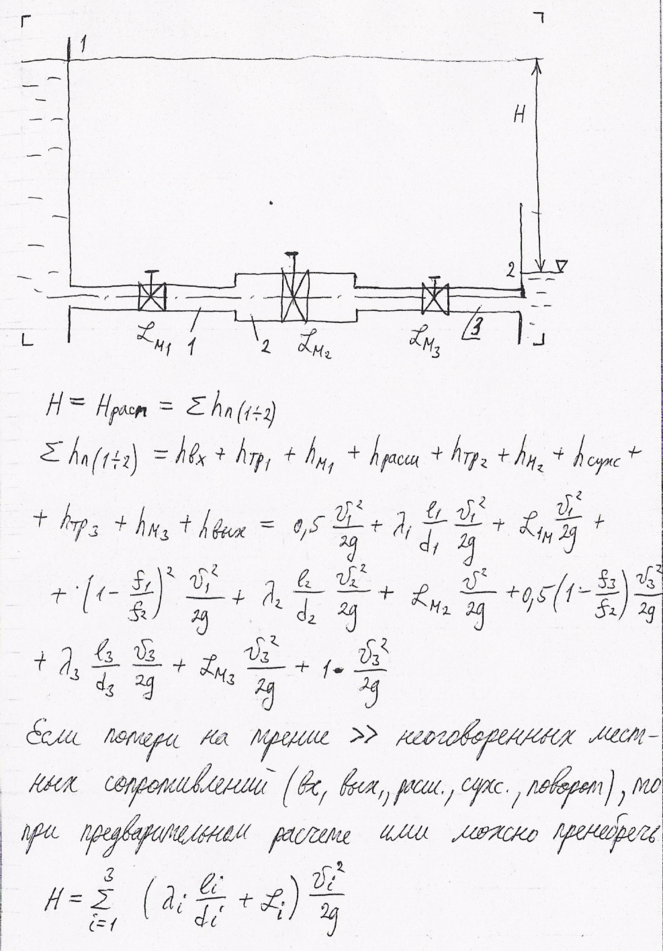 1
H
2
ℒм₁ 1 2 ℒм₂ ℒм₃ 3
H = Hрасп = Σhп(1÷2)
Σhп(1÷2) = hвх + hтр₁ + hм₁ + hрасш + hтр₂ + hм₂ + hсуж +
+ hтр₃ + hм₃ + hвых = 0,5 v₁²/2g + λ₁ l₁/d₁ v₁²/2g + ℒ₁м v₁²/2g +
+ (1 - f₁/f₂)² v₁²/2g + λ₂ l₂/d₂ v₂²/2g + ℒм₂ v²/2g + 0,5(1 - f₃/f₂) v₃²/2g
+ λ₃ l₃/d₃ v₃/2g + ℒм₃ v₃²/2g + 1· v₃²/2g
Если потери на трение >> неоговоренных мест-
ных сопротивлений (вх, вых., расш., суж., поворот), то
при предварительном расчете ими можно пренебречь
H = Σ i=1 3 (λi li/di + ℒi) vi²/2g